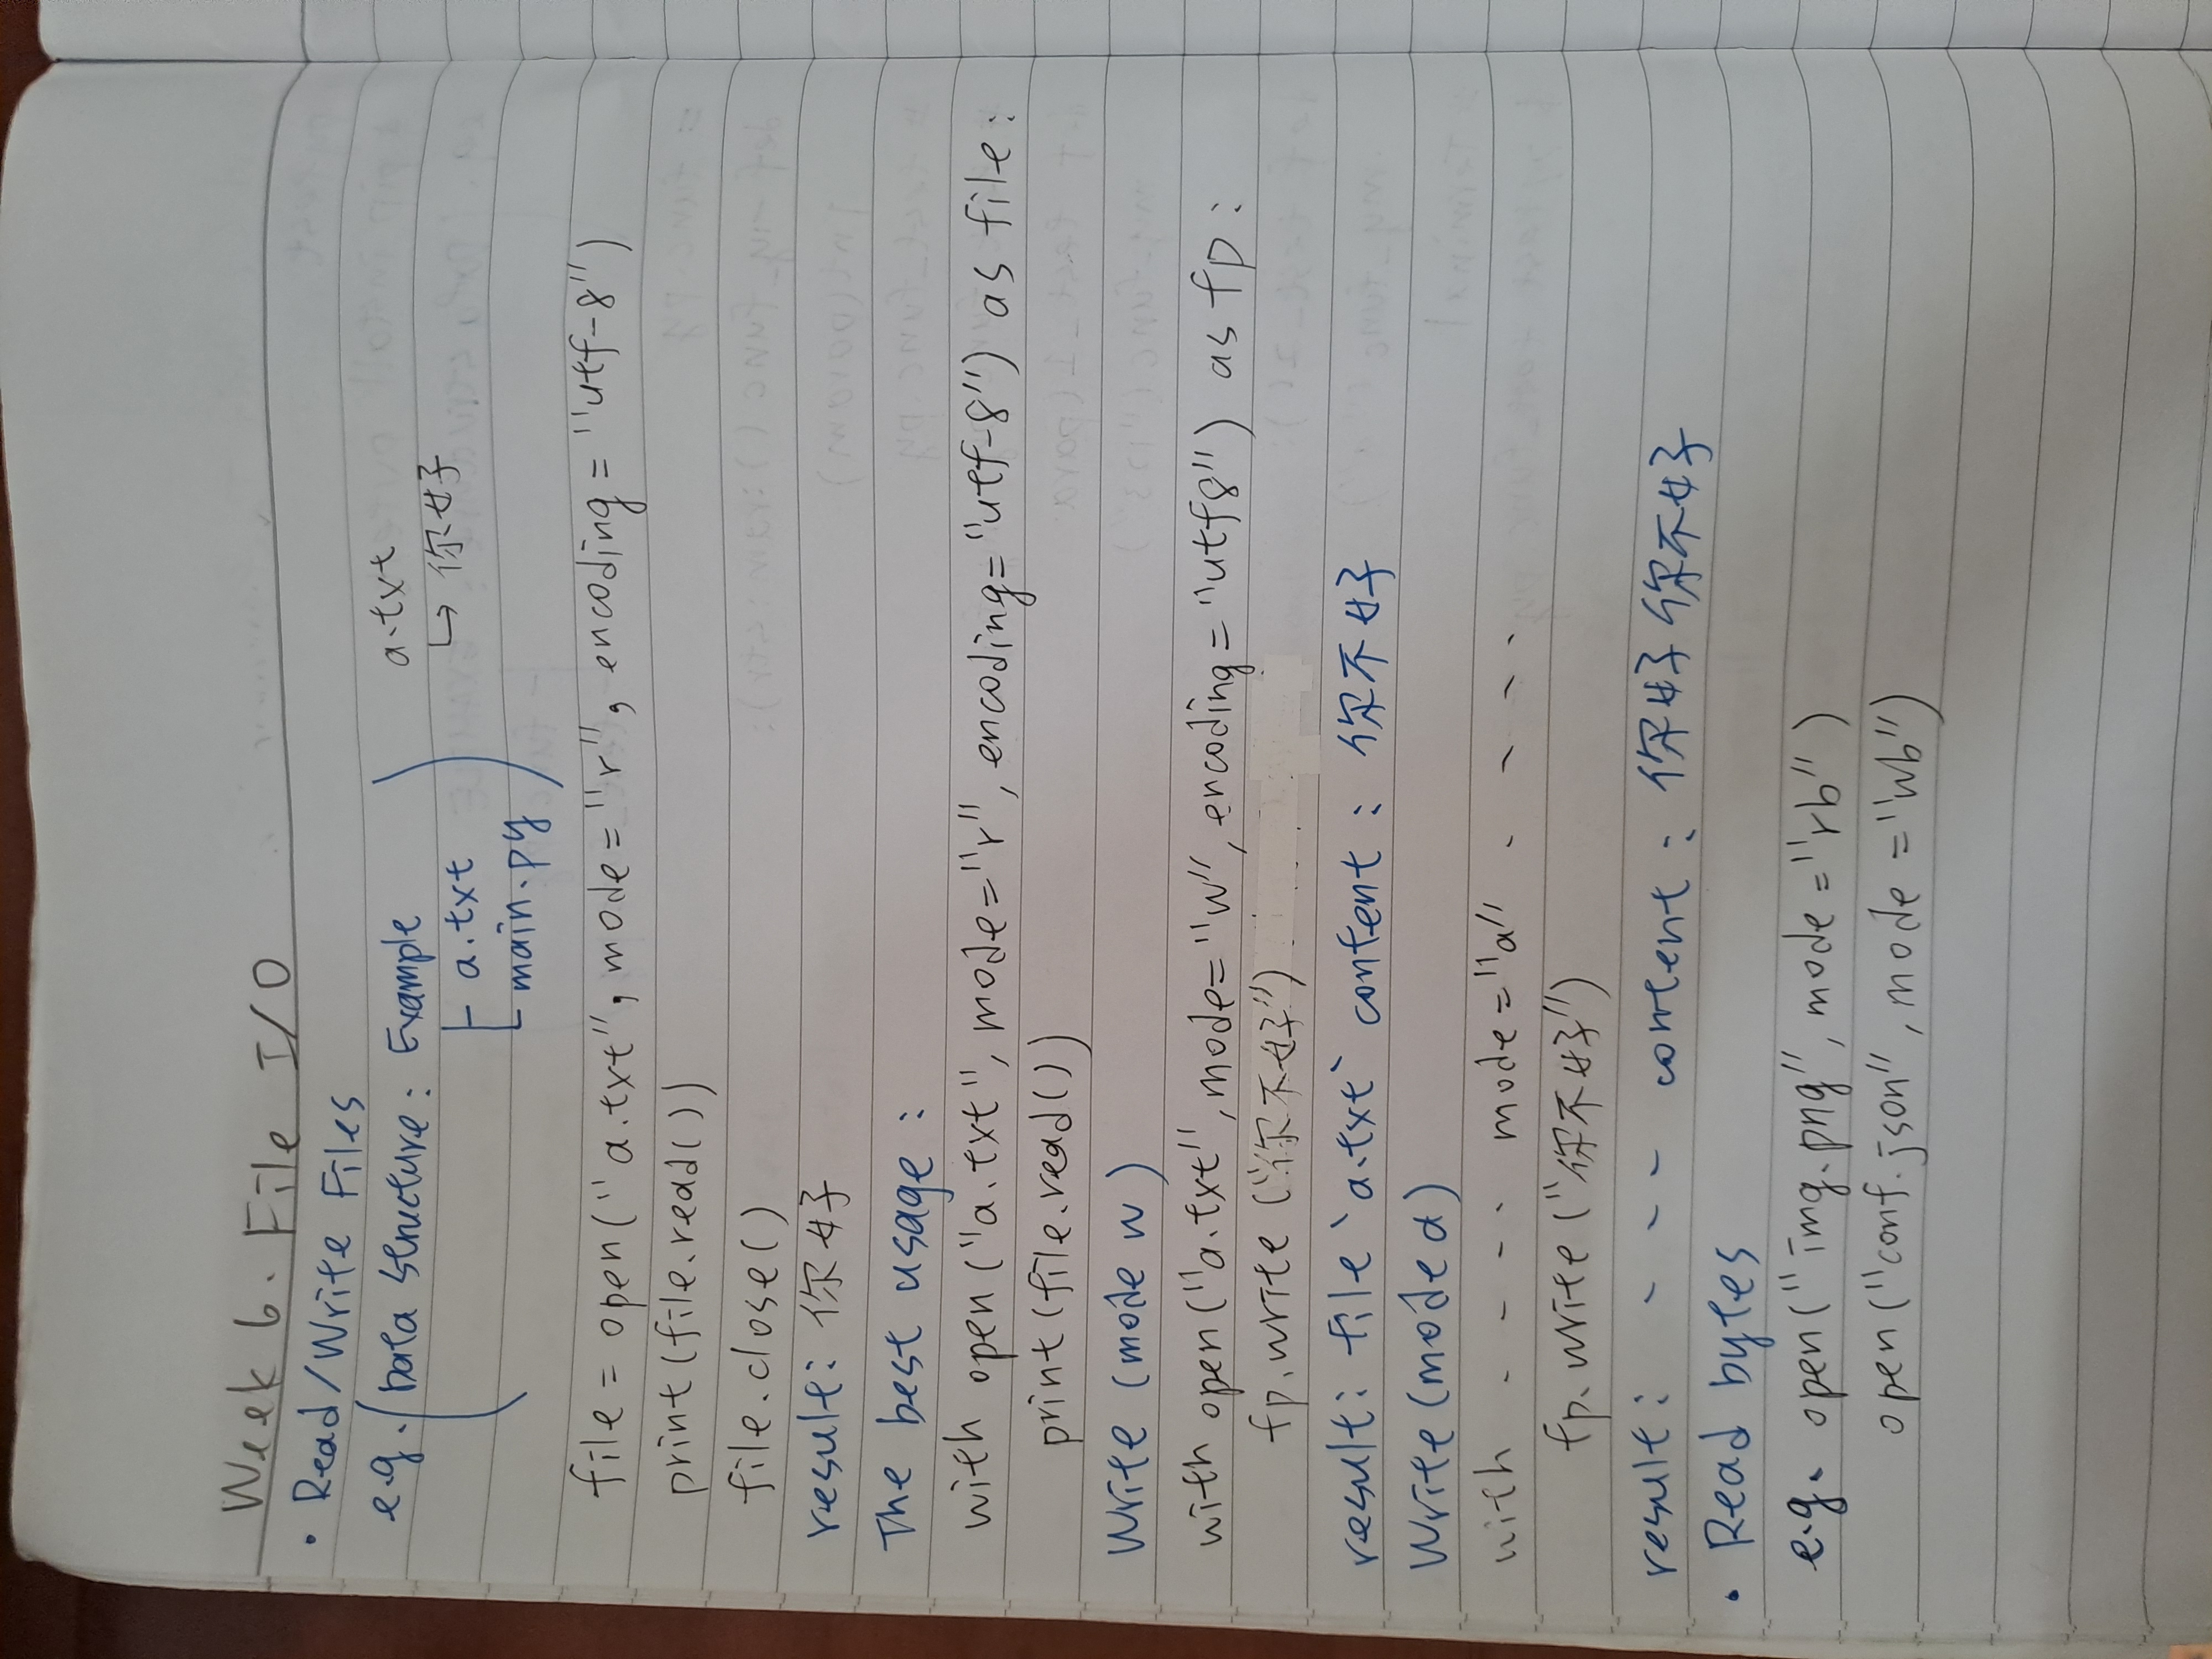 Week 6. File I/O
• Read/Write Files
e.g. (Data Structure: Example
├ a.txt
└ main.py)
a.txt
↳ 你好
file = open("a.txt", mode="r", encoding="utf-8")
print(file.read())
file.close()
result: 你好
The best usage:
with open("a.txt", mode="r", encoding="utf-8") as file:
print(file.read())
Write (mode w)
with open("a.txt", mode="w", encoding="utf8") as fp:
fp.write("你不好")
result: file `a.txt` content: 你不好
Write (mode a)
with - - - - mode="a" - - - -
fp.write("你不好")
result: - - - content: 你好你不好
• Read bytes
e.g. open("img.png", mode="rb")
open("conf.json", mode="wb")